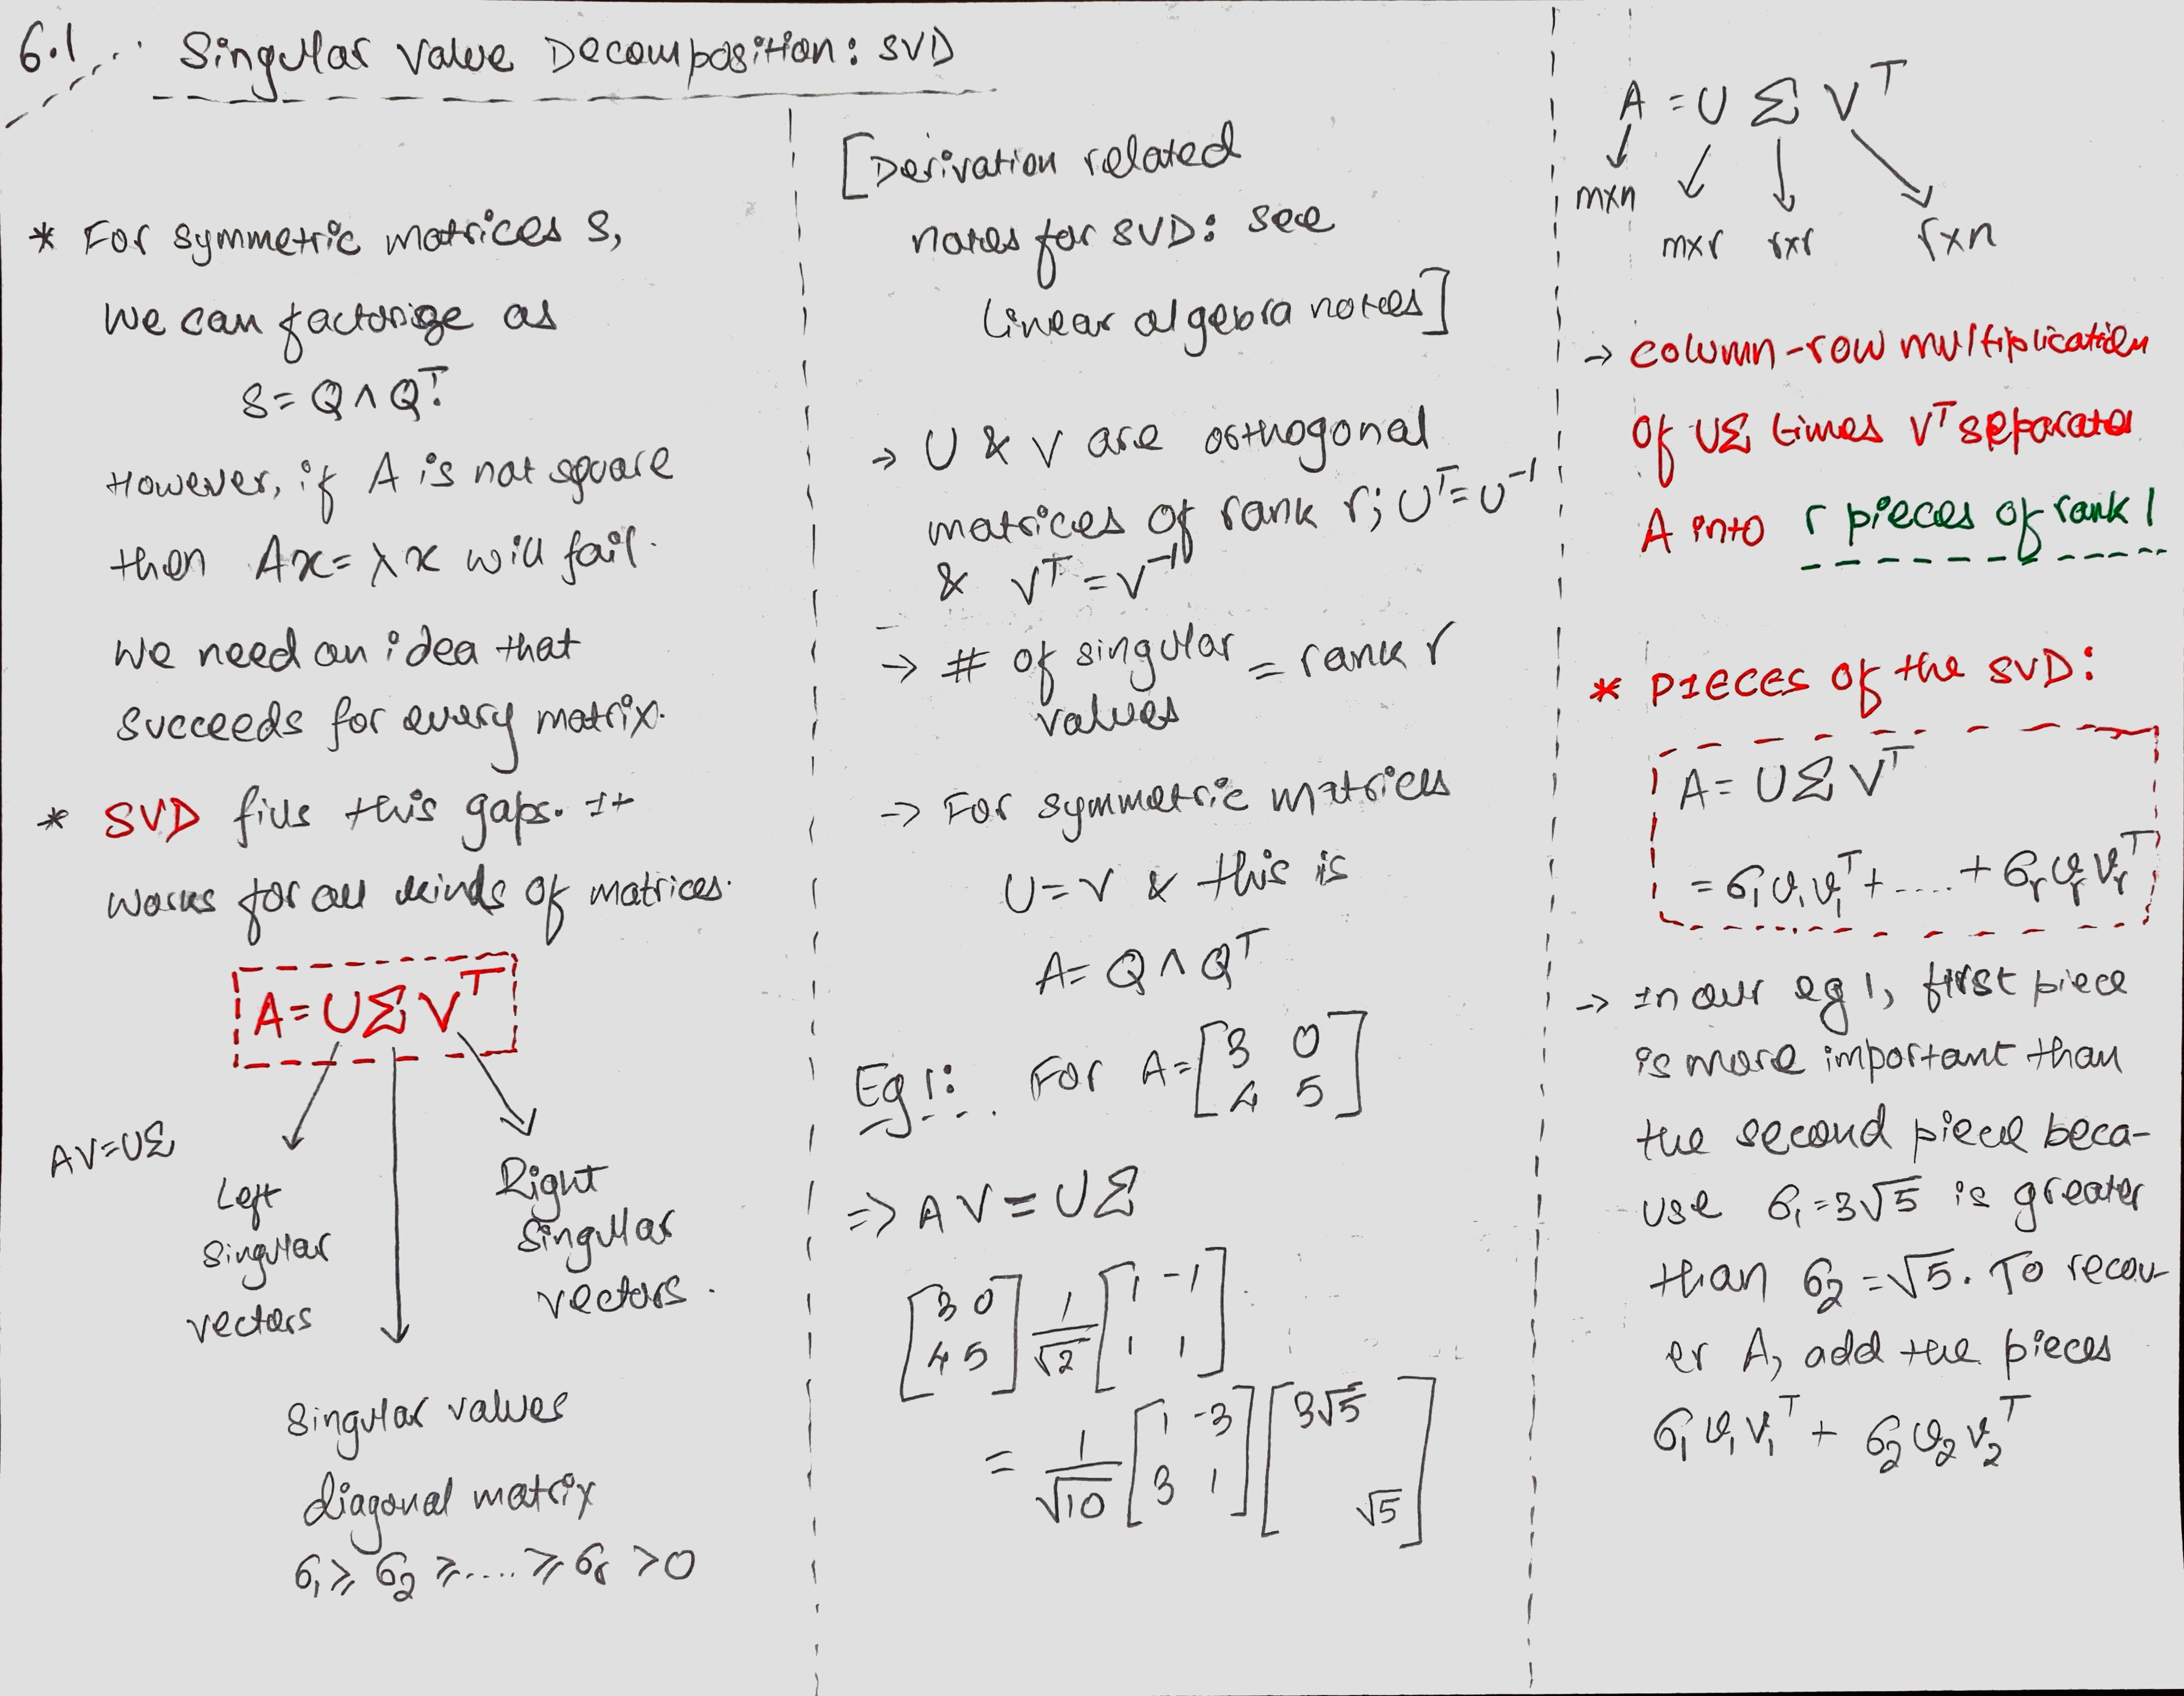 6.1 Singular Value Decomposition: SVD
* For symmetric matrices S,
We can factorize as
S = Q Λ Qᵀ.
However, if A is not square
then Ax = λx will fail.
We need an idea that
succeeds for every matrix.
* SVD fills this gaps. It
works for all kinds of matrices.
A = U Σ Vᵀ
AV = UΣ
Left
Singular
vectors
Right
Singular
vectors.
Singular values
diagonal matrix
σ₁ ≥ σ₂ ≥ .... ≥ σᵣ > 0
[Derivation related
notes for SVD: see
Linear algebra notes]
→ U & V are orthogonal
matrices of rank r; Uᵀ = U⁻¹
& Vᵀ = V⁻¹
→ # of singular = rank r
values
→ For symmetric matrices
U = V & this is
A = Q Λ Qᵀ
Eg 1: For A = [3 0
4 5]
⇒ A V = U Σ
[3 0
4 5] 1/√2 [1 -1
1 1]
= 1/√10 [1 -3
3 1] [3√5
√5]
A = U Σ Vᵀ
m×n
m×r r×r r×n
→ column-row multiplication
of UΣ times Vᵀ separates
A into r pieces of rank 1
* PIECES of the SVD:
A = U Σ Vᵀ
= σ₁ u₁ v₁ᵀ + .... + σᵣ uᵣ vᵣᵀ
→ In our eg 1, first piece
is more important than
the second piece beca-
use σ₁ = 3√5 is greater
than σ₂ = √5. To recov-
er A, add the pieces
σ₁ u₁ v₁ᵀ + σ₂ u₂ v₂ᵀ